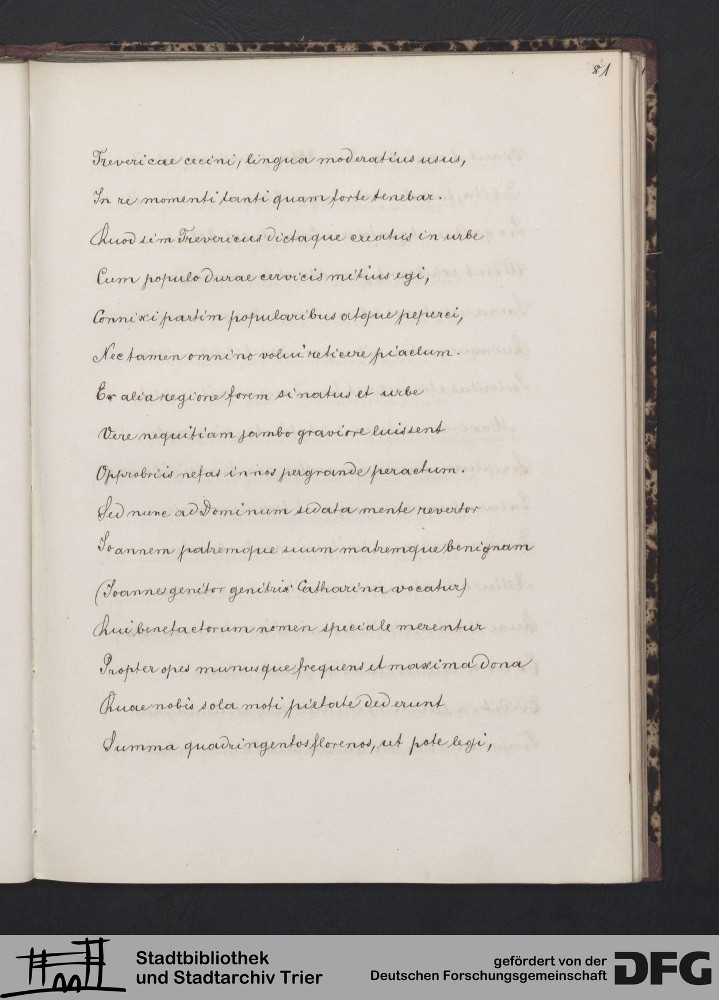 81
Trevericae cecini, lingua moderatius usus,
In re momenti tanti quam forte tenebar.
Quod sim Trevericus dictaque creatus in urbe
Cum populo durae cervicis mitius egi,
Connixi partim popularibus atque peperci,
Nec tamen omnino volui reticere piaclum.
Ex alia regione forem si natus et urbe
Vere nequitiam jambo graviore luissent
Opprobriis nefas in nos pergrande peractum.
Sed nunc ad Dominum sedata mente revertor
Joannem patremque suum matremque benignam
(Joannes genitor genitrix Catharina vocatur)
Qui benefactorum nomen speciale merentur
Propter opes munusque frequens et maxima dona
Quae nobis sola moti pietate dederunt
Summa quadringentos florenos, ut pote legi,
Stadtbibliothek
und Stadtarchiv Trier
gefördert von der
Deutschen Forschungsgemeinschaft
DFG